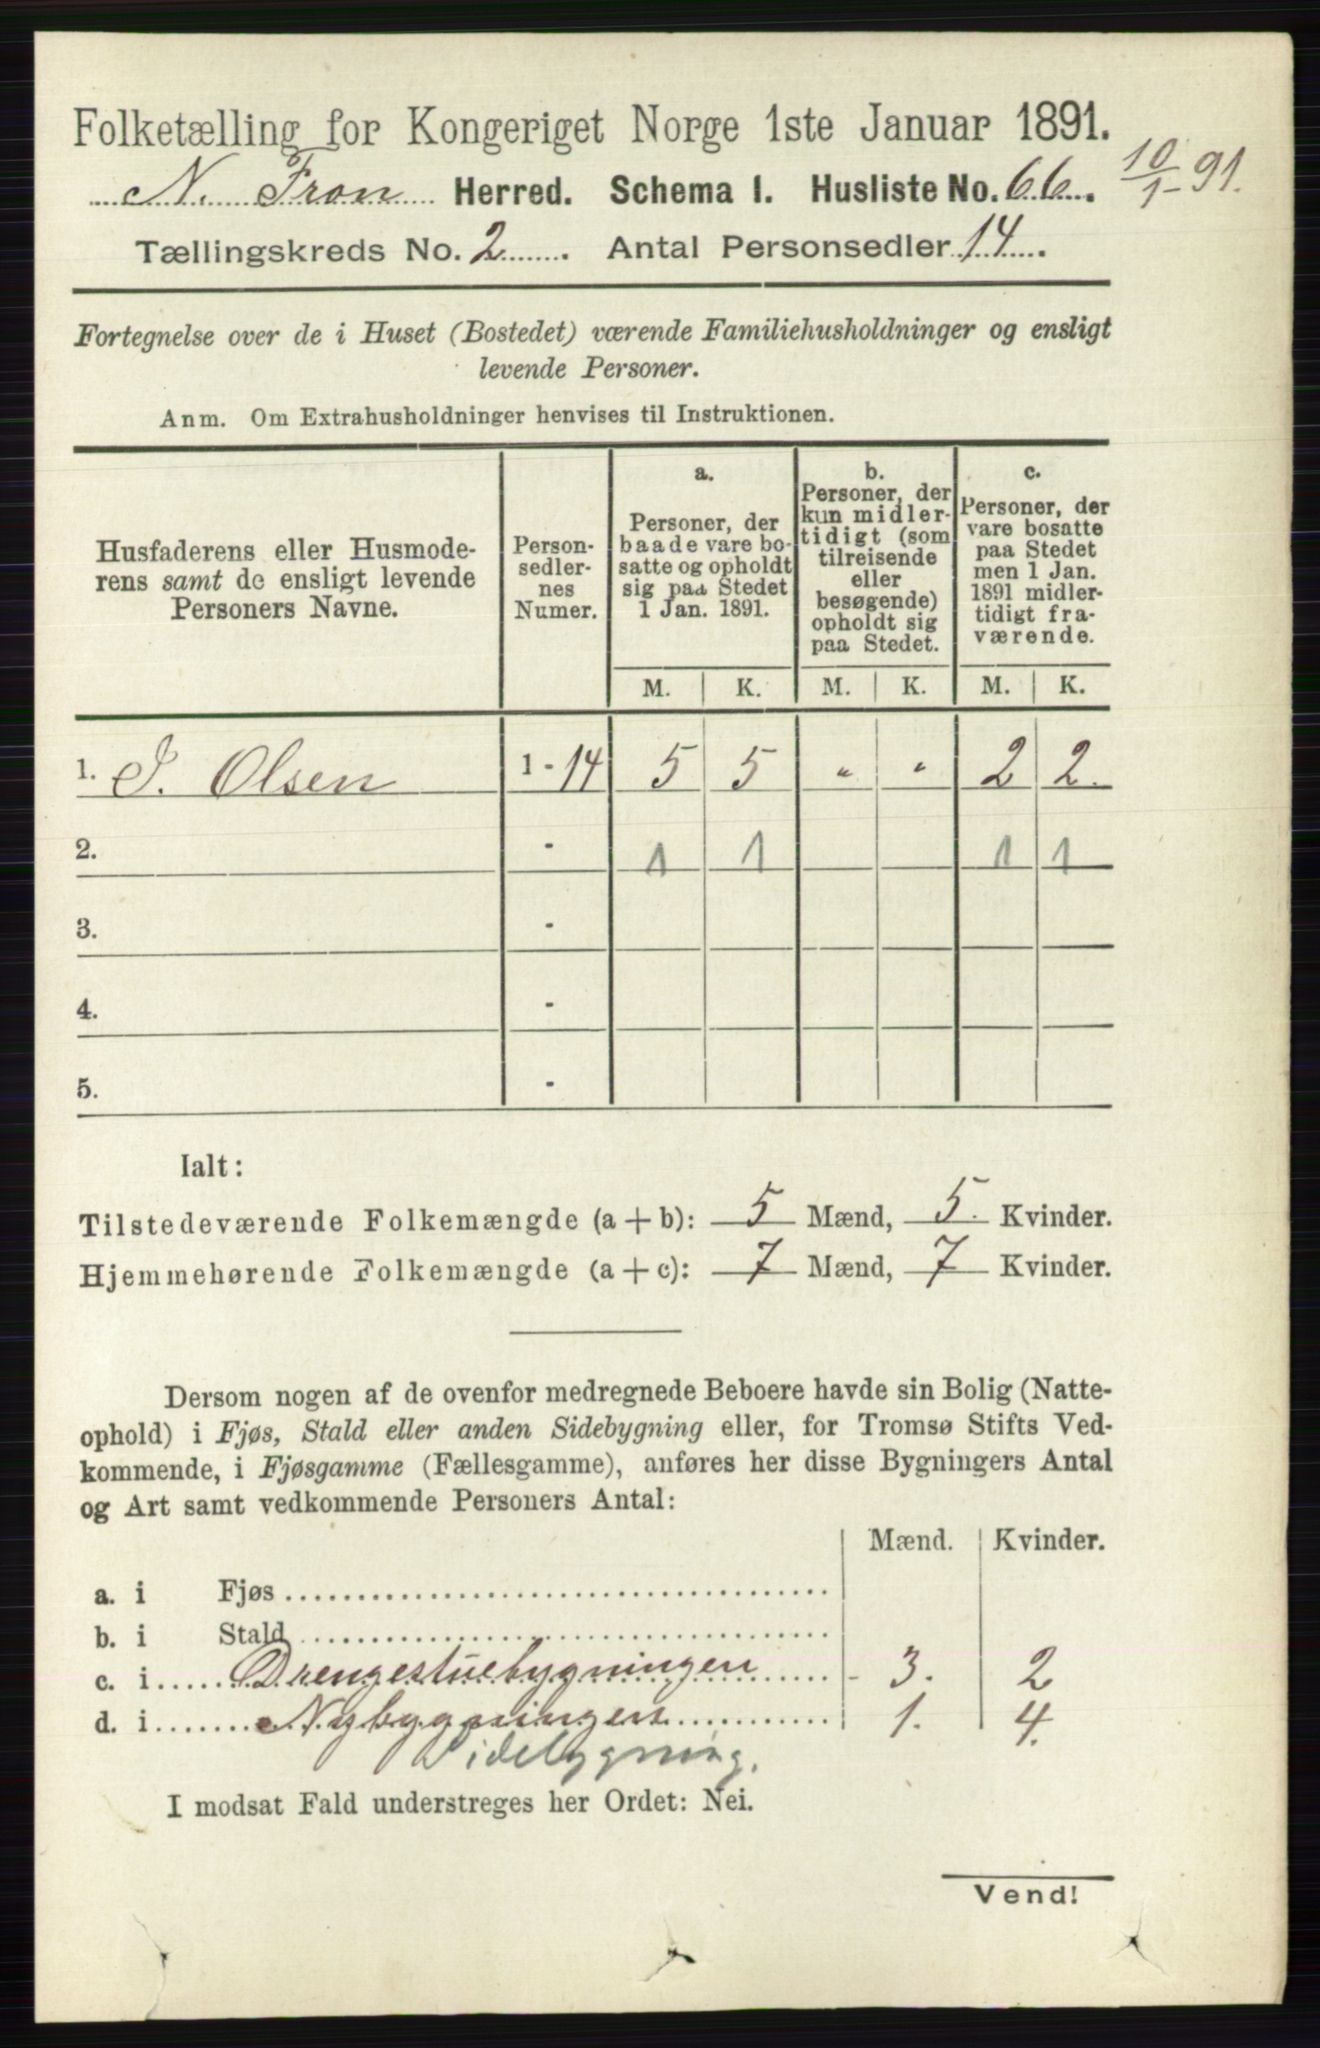 Folketælling for Kongeriget Norge 1ste Januar 1891.
N. Fron Herred. Schema 1. Husliste No. 66.
10/1-91.
Tællingskreds No. 2. Antal Personsedler 14.
Fortegnelse over de i Huset (Bostedet) værende Familiehusholdninger og ensligt
levende Personer.
Anm. Om Extrahusholdninger henvises til Instruktionen.
Husfaderens eller Husmode-
rens samt de ensligt levende
Personers Navne.
Person-
sedler-
nes
Numer.
a.
Personer, der
baade vare bo-
satte og opholdt
sig paa Stedet
1 Jan. 1891.
b.
Personer, der
kun midler-
tidigt (som
tilreisende
eller
besøgende)
opholdt sig
paa Stedet.
c.
Personer, der
vare bosatte
paa Stedet
men 1 Jan.
1891 midler-
tidigt fra-
værende.
M. K. M. K. M. K.
1. I. Olsen 1 - 14 5 5 " " 2 2.
2. - 1 1 1 1
3. -
4. -
5. -
Ialt:
Tilstedeværende Folkemængde (a + b): 5 Mænd, 5. Kvinder.
Hjemmehørende Folkemængde (a + c): 7 Mænd, 7 Kvinder.
Dersom nogen af de ovenfor medregnede Beboere havde sin Bolig (Natte-
ophold) i Fjøs, Stald eller anden Sidebygning eller, for Tromsø Stifts Ved-
kommende, i Fjøsgamme (Fællesgamme), anføres her disse Bygningers Antal
og Art samt vedkommende Personers Antal:
Mænd. Kvinder.
a. i Fjøs
b. i Stald
c. i Drengestuebygningen - 3. 2
d. i Nybygningen 1. 4.
Sidebygning.
I modsat Fald understreges her Ordet: Nei.
Vend!